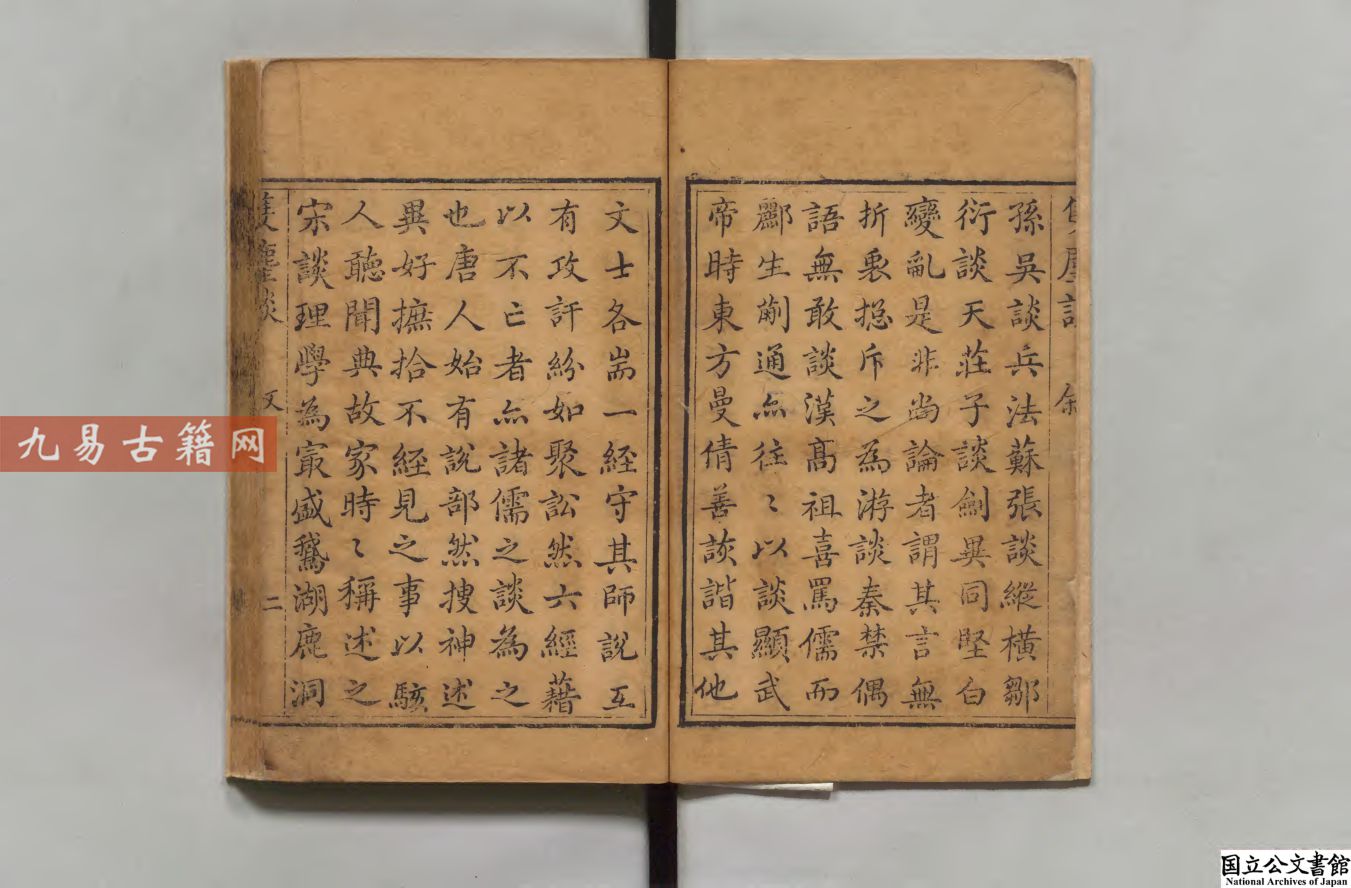 孫吳談兵法蘇張談縱橫鄒
衍談天莊子談劍異同堅白
變亂是非尚論者謂其言無
折衷揔斥之為游談秦禁偶
語無敢談漢高祖喜罵儒而
酈生蒯通亦往〻以談顯武
帝時東方曼倩善詼諧其他
文士各耑一經守其師說互
有攻訐紛如聚訟然六經藉
以不亡者亦諸儒之談為之
也唐人始有說部然搜神述
異好摭拾不經見之事以駭
人聽聞典故家時〻稱述之
宋談理學為㝡盛鵞湖鹿洞
二
九易古籍网
国立公文書館
National Archives of Japan